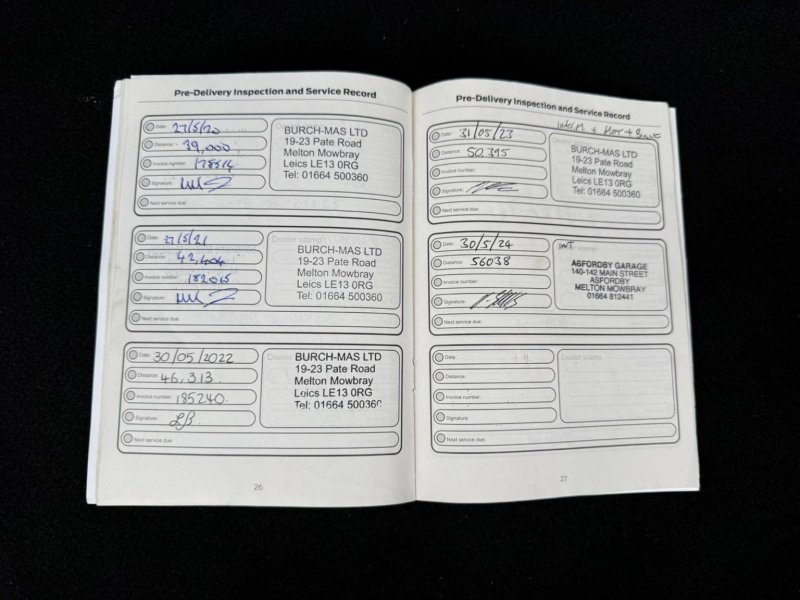 Pre-Delivery Inspection and Service Record
Date: 27/5/20
Distance: 39,000
Invoice number: 178514
Signature:
Next service due:
BURCH-MAS LTD
19-23 Pate Road
Melton Mowbray
Leics LE13 0RG
Tel: 01664 500360
Date: 27/5/21
Distance: 42,604
Invoice number: 182015
Signature:
Next service due:
Dealer stamp
BURCH-MAS LTD
19-23 Pate Road
Melton Mowbray
Leics LE13 0RG
Tel: 01664 500360
Date: 30/05/2022
Distance: 46,313.
Invoice number: 185240.
Signature: LB.
Next service due:
Dealer
BURCH-MAS LTD
19-23 Pate Road
Melton Mowbray
Leics LE13 0RG
Tel: 01664 500360
26
Pre-Delivery Inspection and Service Record
Interim + MOT +
Date: 31/05/23
Distance: 50,395
Invoice number:
Signature:
Next service due:
BURCH-MAS LTD
19-23 Pate Road
Melton Mowbray
Leics LE13 0RG
Tel: 01664 500360
Date: 30/5/24
Distance: 56038
Invoice number:
Signature:
Next service due:
INT
ASFORDBY GARAGE
140-142 MAIN STREET
ASFORDBY
MELTON MOWBRAY
01664 812441
Date:
Distance:
Invoice number:
Signature:
Next service due:
Dealer stamp
27